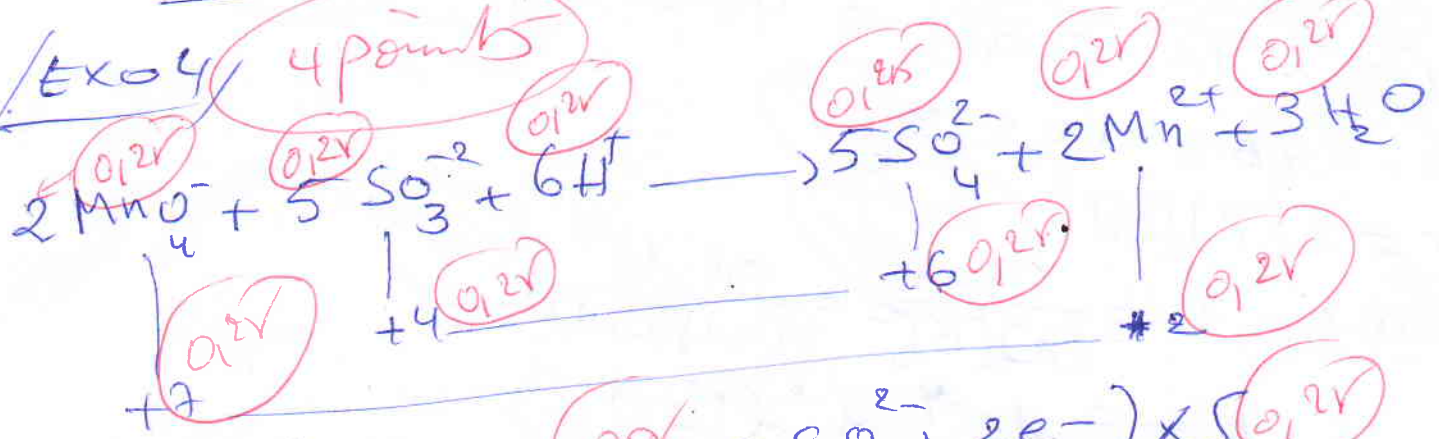 Exo 4 4 points
0,25 0,25 0,25 0,25 0,25 0,25
2 MnO4^- + 5 SO3^-2 + 6H^+ ⟶ 5 SO4^2- + 2 Mn^2+ + 3 H2O
+4 0,25 +6 0,25 2 0,25
+7 0,25
2- 2e-) x 5 0,25